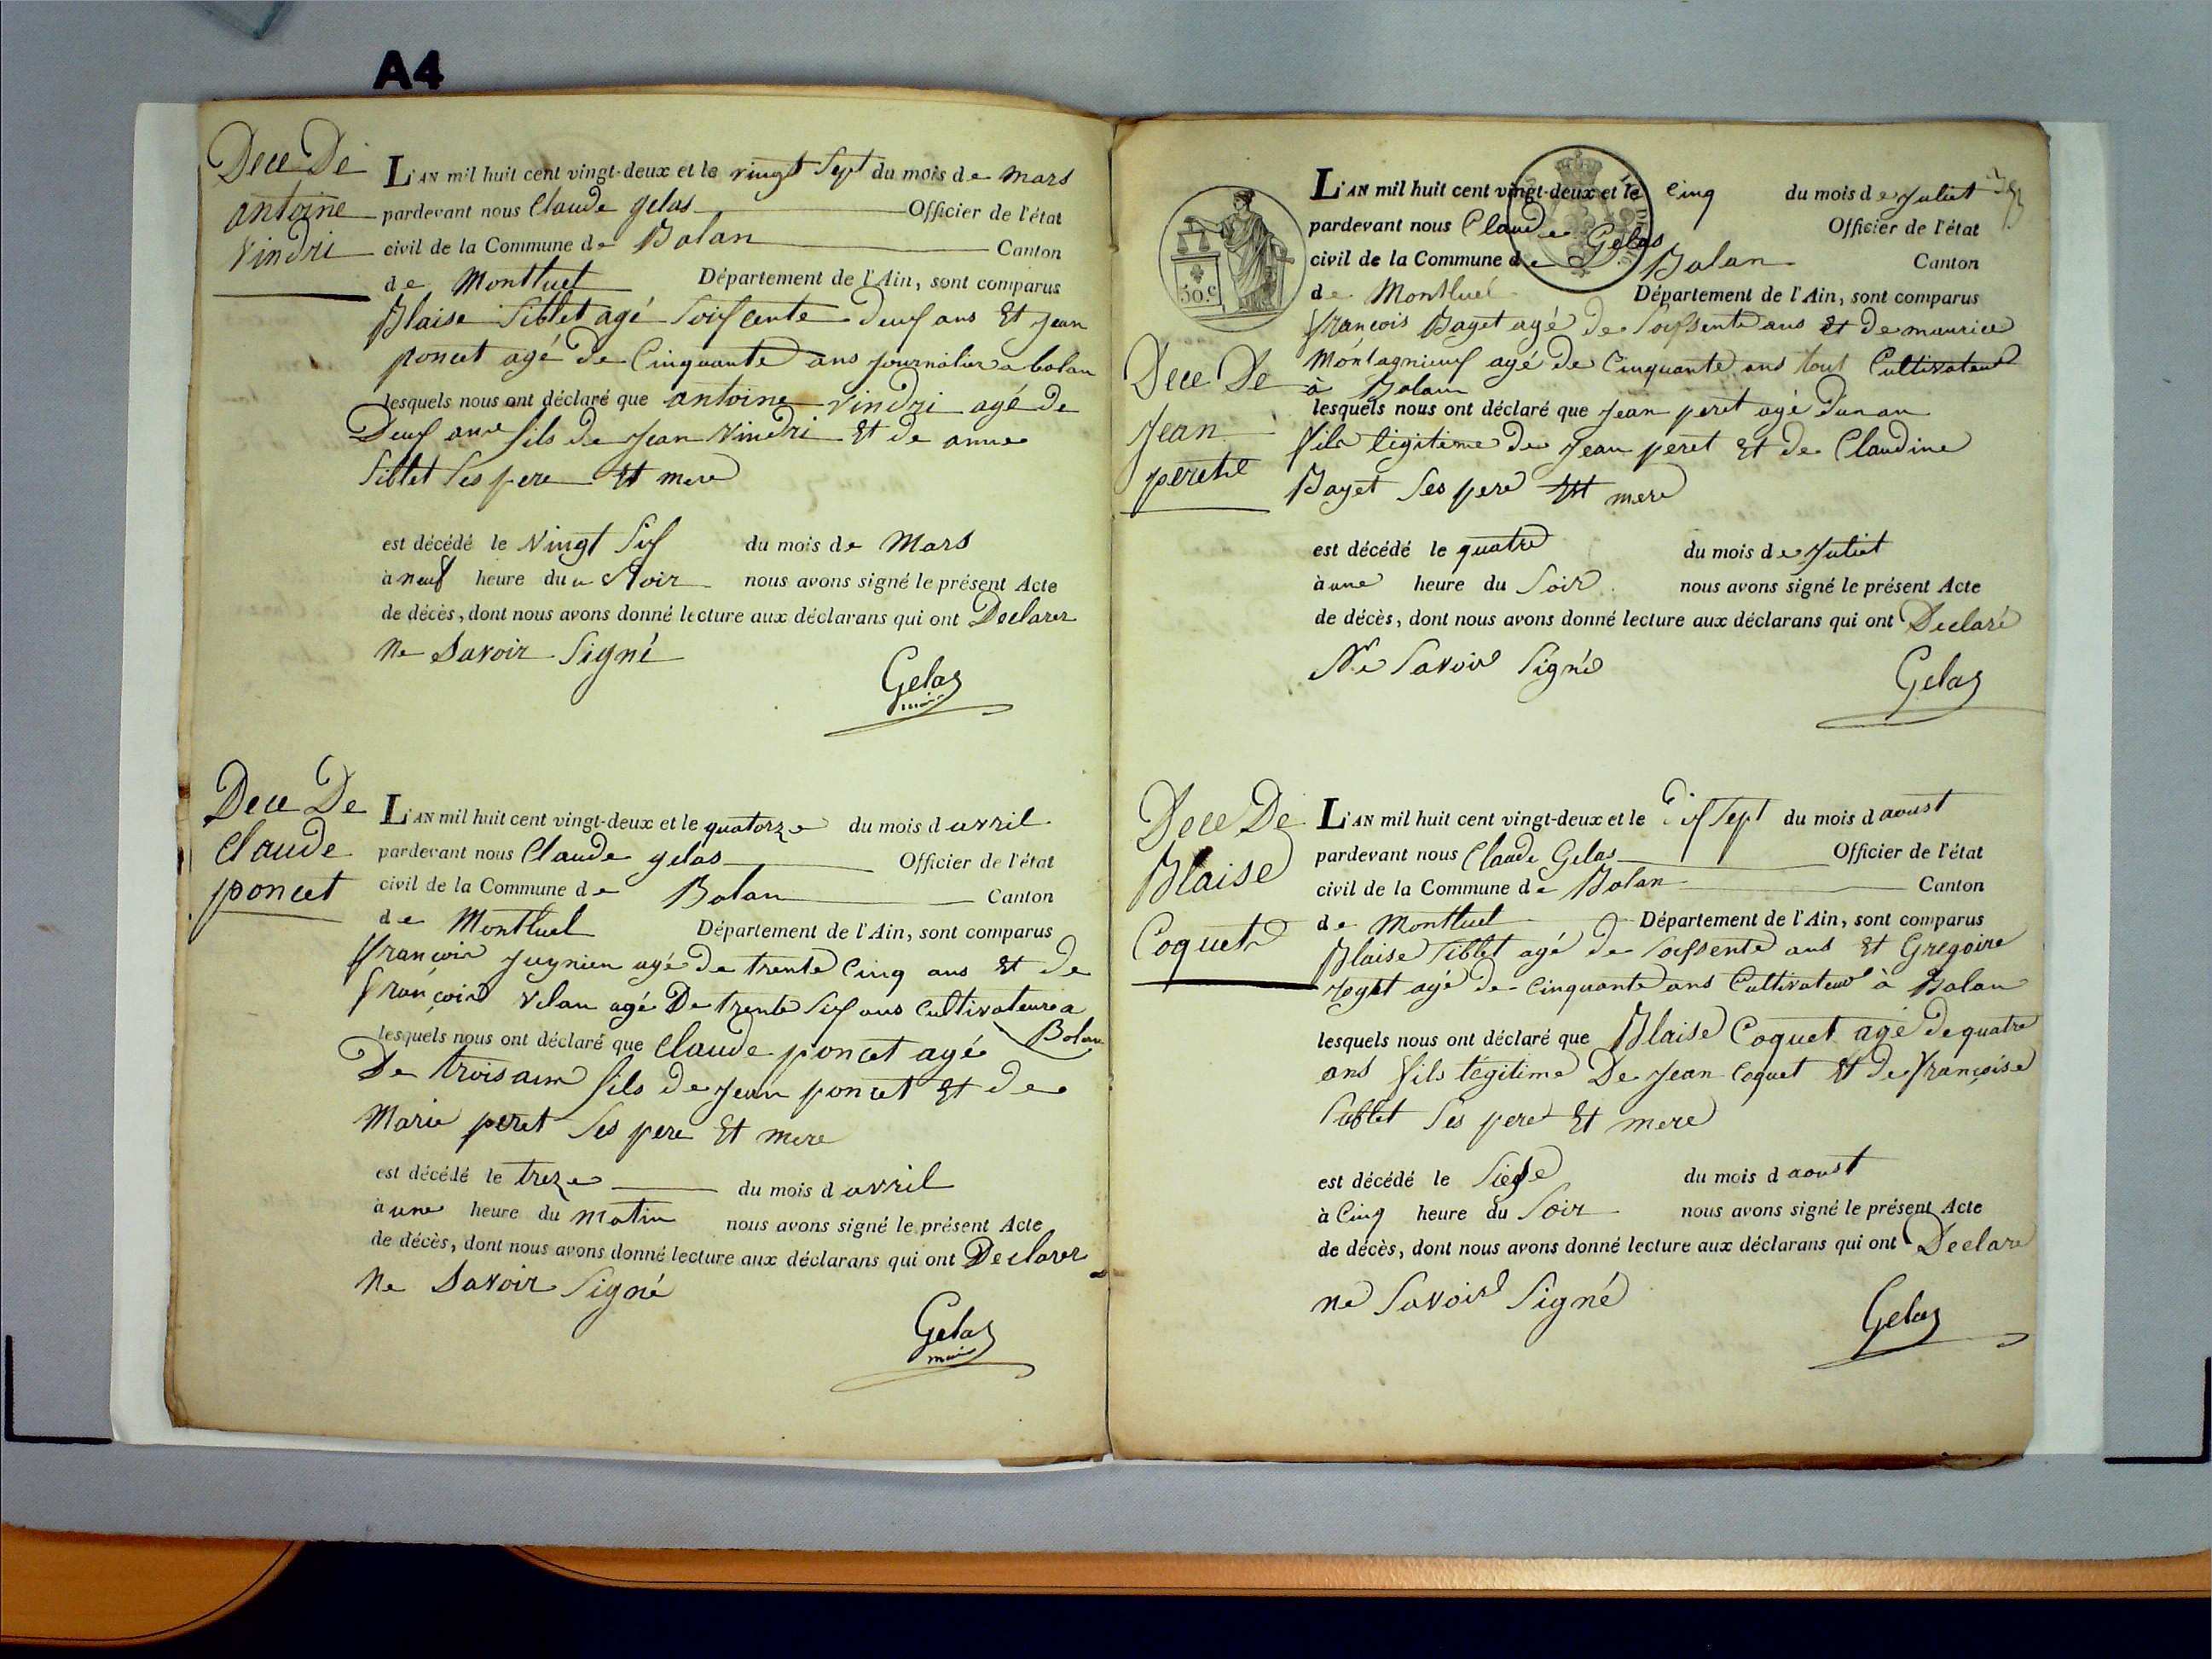 A4
Dece De
antoine
Vindri
L'AN mil huit cent vingt-deux et le vingt Sept du mois de Mars
pardevant nous Claude gelas Officier de l'état
civil de la Commune de Balan Canton
de Montluel Département de l'Ain, sont comparus
Blaise Siblet agé Soixente Deux ans Et Jean
poncet agé de Cinquante ans Journalier a balan
lesquels nous ont déclaré que antoine vindri agé de
Deux ans fils de Jean Vindri Et de anne
Siblet Ses pere Et mere
est décédé le Vingt Six du mois de Mars
à neuf heure du Soir nous avons signé le présent Acte
de décès, dont nous avons donné lecture aux déclarans qui ont Declarer
Ne Savoir Signé
Gelas
maire
Dece De
Claude
poncet
L'AN mil huit cent vingt-deux et le quatorze du mois d avril
pardevant nous Claude gelas Officier de l'état
civil de la Commune de Balan Canton
de Montluel Département de l'Ain, sont comparus
françois Juynien agé de trente Cinq ans Et de
françois vilan agé De trente Six ans Cultivateure a
Balan
lesquels nous ont déclaré que Claude poncet agé
De trois ans fils de Jean poncet Et de
Marie peret Ses pere Et mere
est décédé le treze du mois d avril
à une heure du Matin nous avons signé le présent Acte
de décès, dont nous avons donné lecture aux déclarans qui ont Declarer
Ne Savoir Signé
Gelas
maire
50.c
Dece De
Jean
peret
L'AN mil huit cent vingt-deux et le Cinq du mois de Juliet
pardevant nous Claude Gelas Officier de l'état
civil de la Commune de Balan Canton
de Montluel Département de l'Ain, sont comparus
françois Baget agé de Soissente ans Et de maurice
Montagnieux agé de Cinquante ans tout Cultivateur
à Balan
lesquels nous ont déclaré que Jean peret agé d'un an
fils légitime de Jean peret Et de Claudine
Baget Ses pere Et mere
est décédé le quatre du mois de Juliet
à une heure du Soir nous avons signé le présent Acte
de décès, dont nous avons donné lecture aux déclarans qui ont Declaré
Ne Savoir Signé
Gelas
Dece De
Blaise
Coquet
L'AN mil huit cent vingt-deux et le dix Sept du mois d aoust
pardevant nous Claude Gelas Officier de l'état
civil de la Commune de Balan Canton
de Montluel Département de l'Ain, sont comparus
Blaise Siblet agé de Soissente ans Et Gregoire
agé de Cinquante ans Cultivateur à Balan
lesquels nous ont déclaré que Blaise Coquet agé de quatre
ans fils légitime De Jean Coquet Et de françoise
Siblet Ses pere Et mere
est décédé le Sieze du mois d aoust
à Cinq heure du Soir nous avons signé le présent Acte
de décès, dont nous avons donné lecture aux déclarans qui ont Declaré
ne Savoir Signé
Gelas